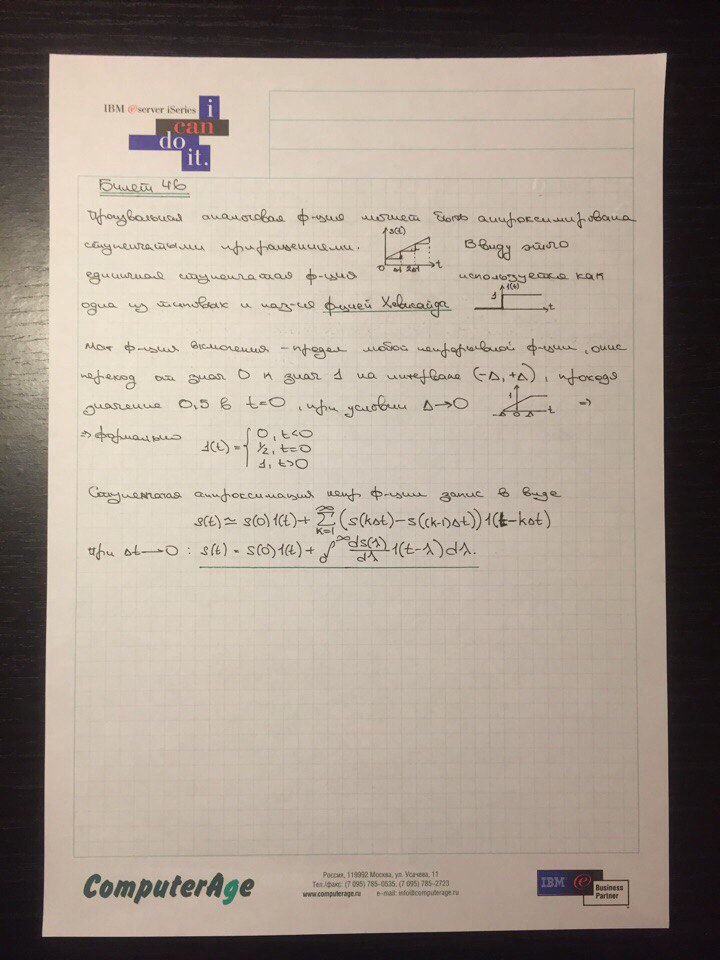 IBM @server iSeries
i
can
do
it.
Билет 46
Произвольная аналоговая ф-ция может быть аппроксимирована
ступенчатыми приращениями. s(t) 0 Δt 2Δt t Ввиду этого
единичная ступенчатая ф-ция используется как
одна из типовых и наз-ся ф-цией Хевисайда 1 1(t) t
ф-ция включения - предел любой непрерывной ф-ции, опис
переход от знач 0 к знач 1 на интервале (-Δ, +Δ), проходя
значение 0,5 в t=0, при условии Δ→0 1 -Δ 0 Δ t ⇒
⇒ формально 1(t) = { 0, t<0
1/2, t=0
1, t>0
Ступенчатая аппроксимация непр ф-ции запис в виде
s(t) ≃ s(0)1(t) + ∑_{k=1}^{∞} (s(kΔt) - s((k-1)Δt)) 1(t-kΔt)
При Δt→0 : s(t) = s(0)1(t) + ∫_0^∞ ds(λ)/dλ 1(t-λ)dλ.
ComputerAge
Россия, 119992 Москва, ул. Усачева, 11
Тел./факс: (7 095) 785-0535, (7 095) 785-2723
www.computerage.ru e-mail: info@computerage.ru
IBM @ Business
Partner